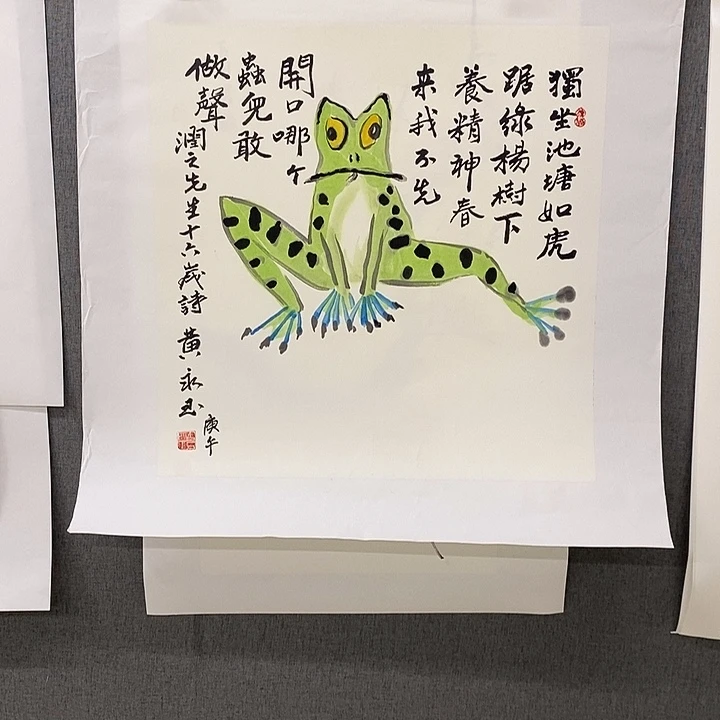 獨坐池塘如虎
踞綠楊樹下
養精神春
来我不先
開口哪个
蟲兒敢
做聲
潤之先生十六歲詩 黄永玉
庚午